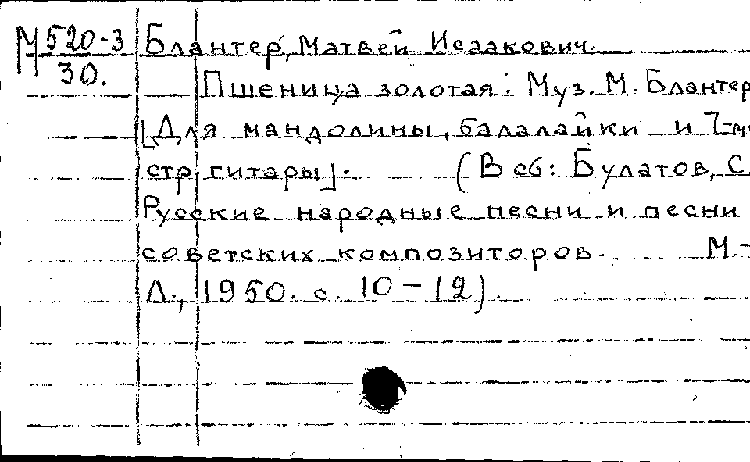 М 520-3 Блантер, Матвей Исаакович.
30. Пшеница золотая: Муз. М. Блантер
[Для мандолины, балалайки и 7-ми
стр. гитары]. (В сб: Булатов, С.
Русские народные песни и песни
советских композиторов. М-
Л., 1950. с. 10-12)